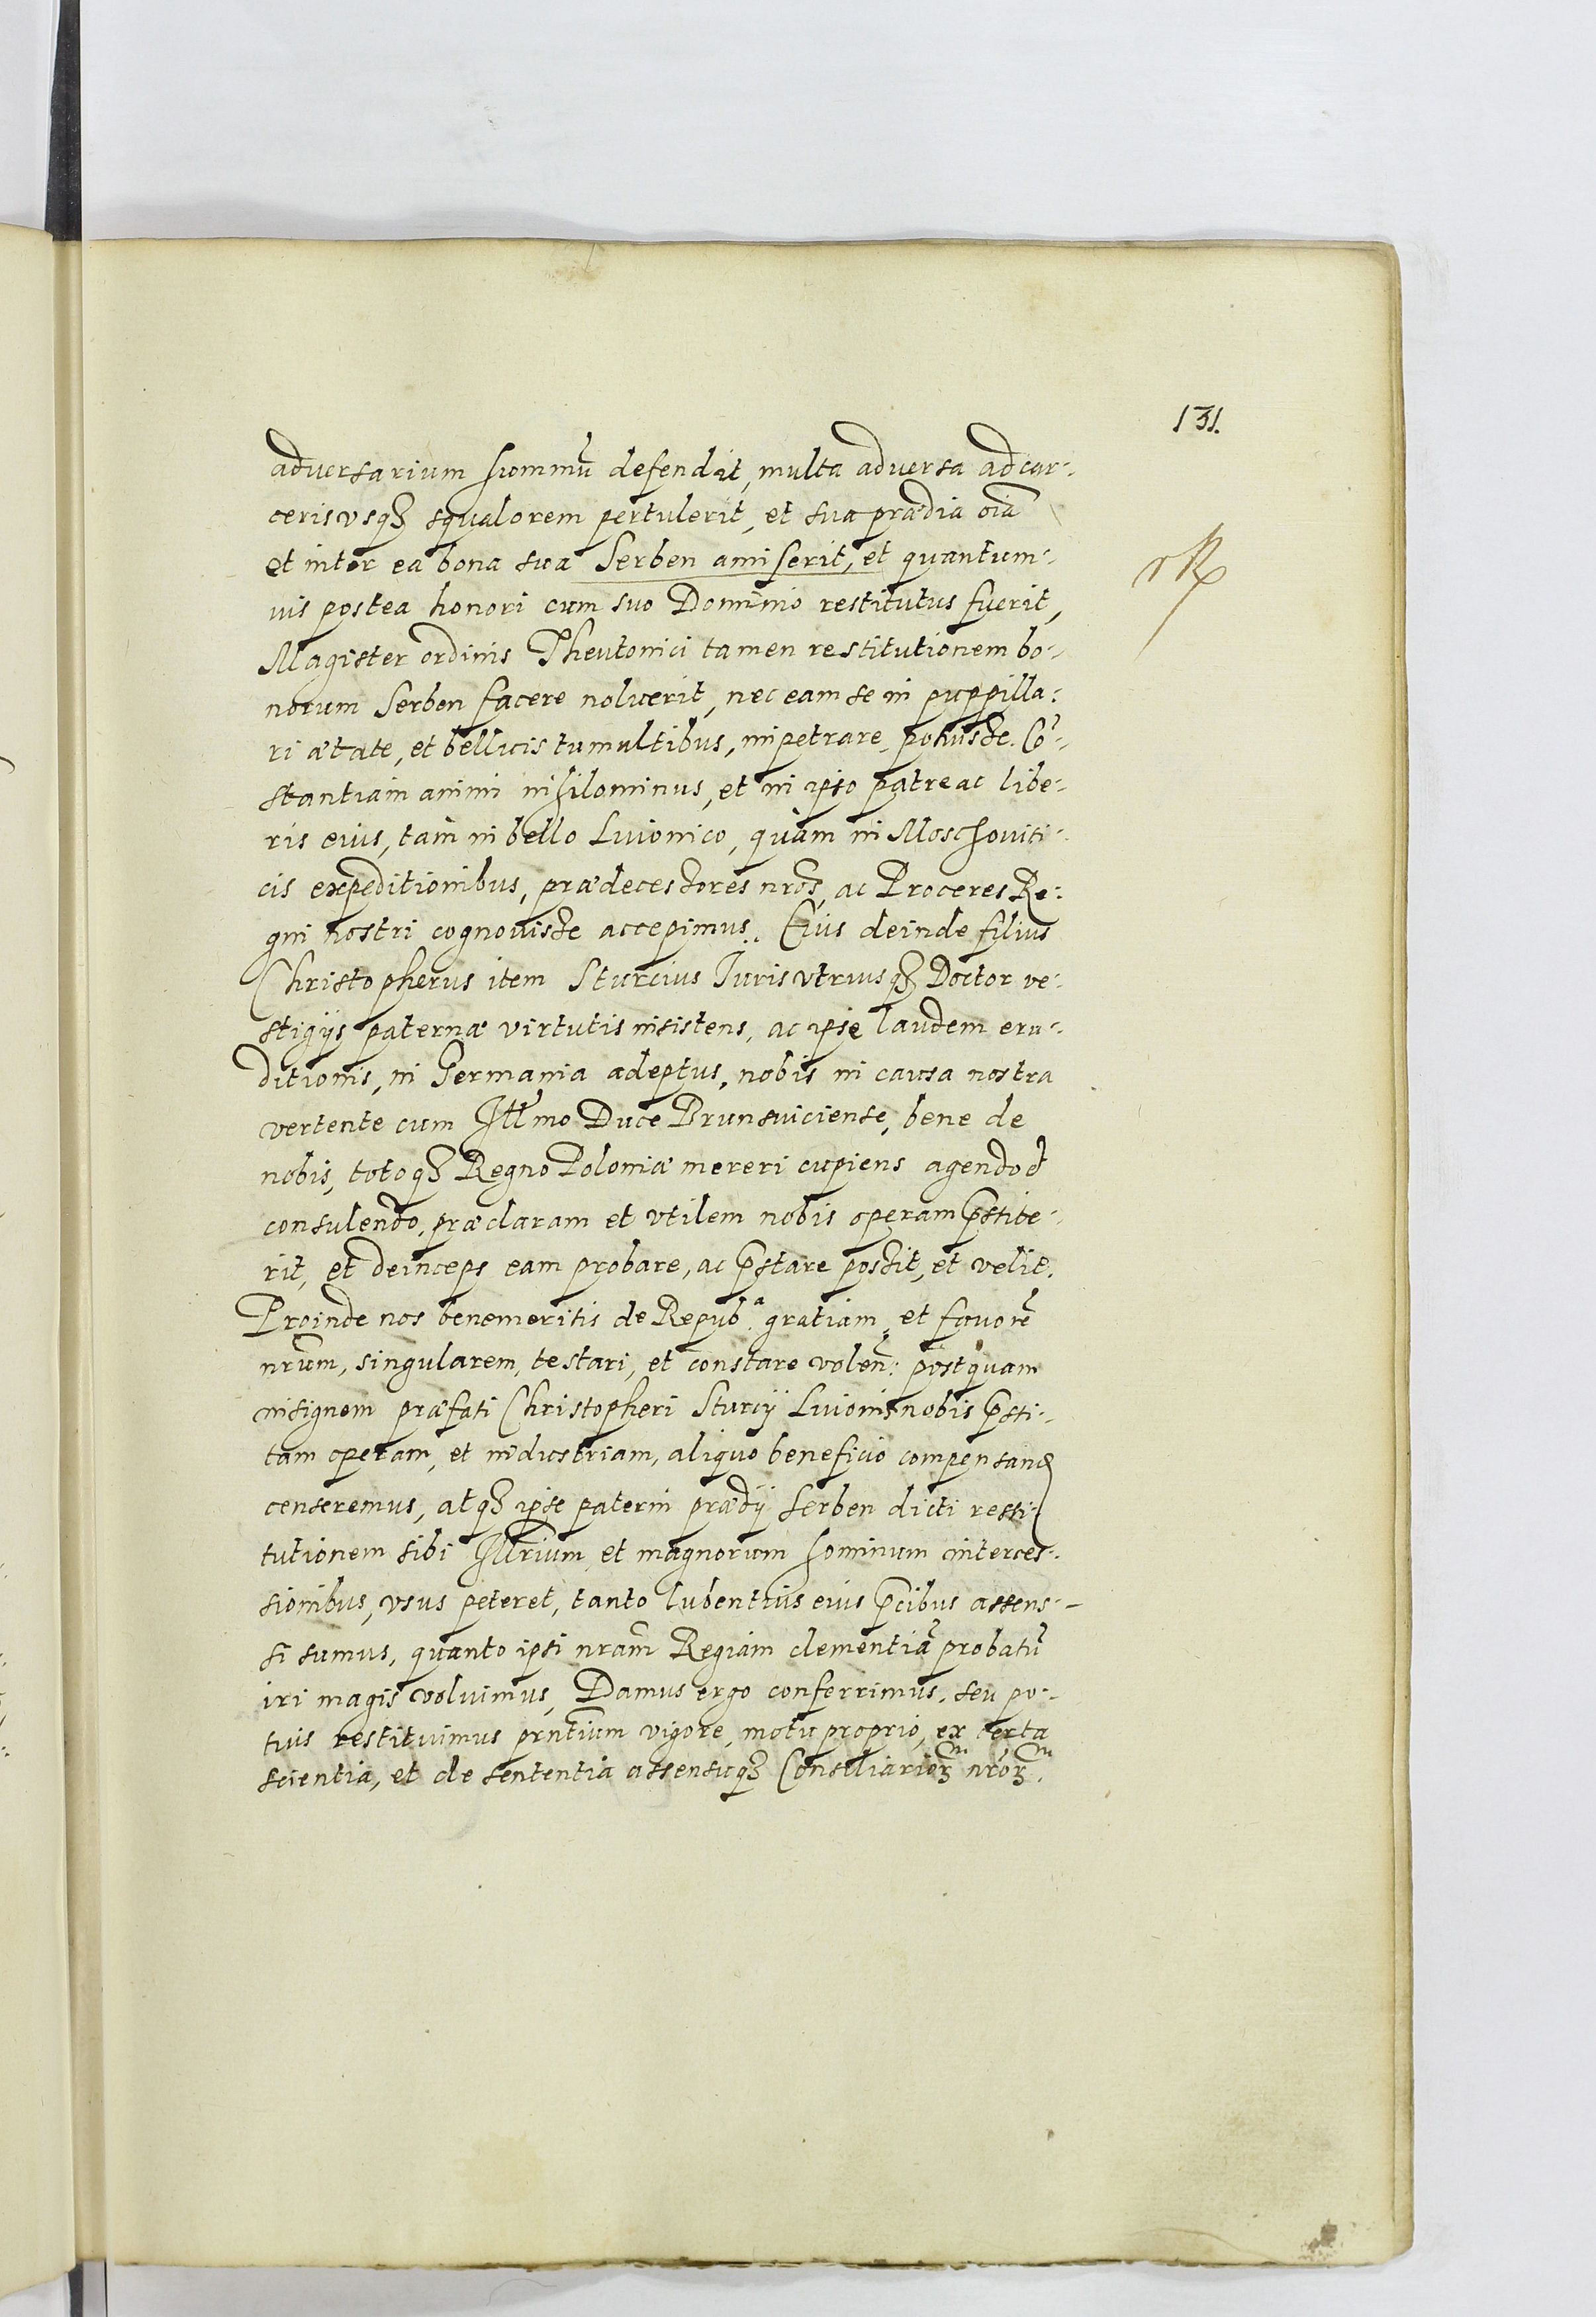 131.
adversarium summũ defendit, multa adversa ad car-
ceris vsqꝫ squalorem pertulerit, et sua prædia oīa
et inter ea bona sua Serben amiserit, et quantum-
uis postea honori cum suo Dominio restitutus fuerit,
Magister ordinis Theutonici tamen restitutionem bo-
norum Serben facere noluerit, nec eam se in puppilla:
ri ætate, et bellicis tumultibus, impetrare potuisse. Cõ-
stantiam animi nihilominus, et in ipso patre ac libe-
ris eius, tam in bello Liuonico, quàm in Moschouiti-
cis expeditionibus, prædecessores nr̃os, ac Proceres Re:
gni nostri cognouisse accepimus. Eius deinde filius
Christopherus item Sturcius Iuris vtriusqꝫ Doctor ve:
stigijs paternæ virtutis insistens, ac ipse laudem eru-
ditionis, in Germania adeptus, nobis in causa nostra
vertente cum Illr̃mo Duce Brunsuiciense, bene de
nobis, totoqꝫ Regno Poloniæ mereri cupiens agendo et
consulendo, præclaram et vtilem nobis operam p̃stite-
rit, et deinceps eam probare, ac p̃stare possit, et velit.
Proinde nos benemeritis de Repub.ᵃ gratiam, et fauorẽ
nr̃um, singularem, testari, et constare volen̄: postquam
insignem præfati Christopheri Sturcij Liuonis nobis p̃sti-
tam operam, et industriam, aliquo beneficio compensand
censeremus, atqꝫ ipse paterni prædij Serben dicti resti-
tutionem sibi Illr̃ium et magnorum hominum interces-
sionibus, vsus peteret, tanto lubentius eius p̃cibus assens-
si sumus, quanto ipsi nr̃am Regiam clementiã probatũ
iri magis voluimus, Damus ergo conferrimus, seu po-
tius restituimus prñtium vigore, motu proprio, ex certa
scientia, et de sententia assensuqꝫ Consiliarioꝝm nr̃oꝝm.